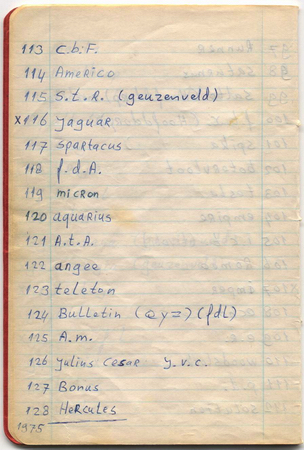 113 C.b.F.
114 Americo
115 S.t.R. (geuzenveld)
x116 Jaguar
117 Spartacus
118 f.d.A.
119 micron
120 aquarius
121 A.t.A.
122 angee
123 teleton
124 Bulletin (@y=) (fdl)
125 A.m.
126 Julius Cesar J.v.c.
127 Bonus
128 Hercules
1975